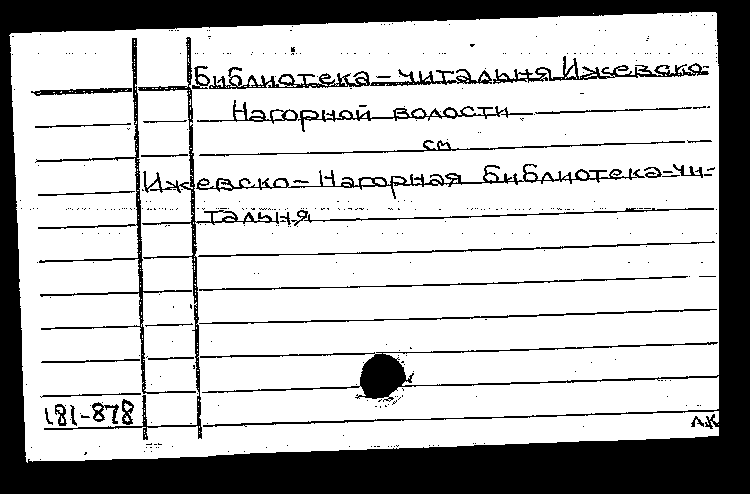 Библиотека-читальня Ижевско-
Нагорной волости
см
Ижевско-Нагорная библиотека-чи-
тальня
181-878
л.к